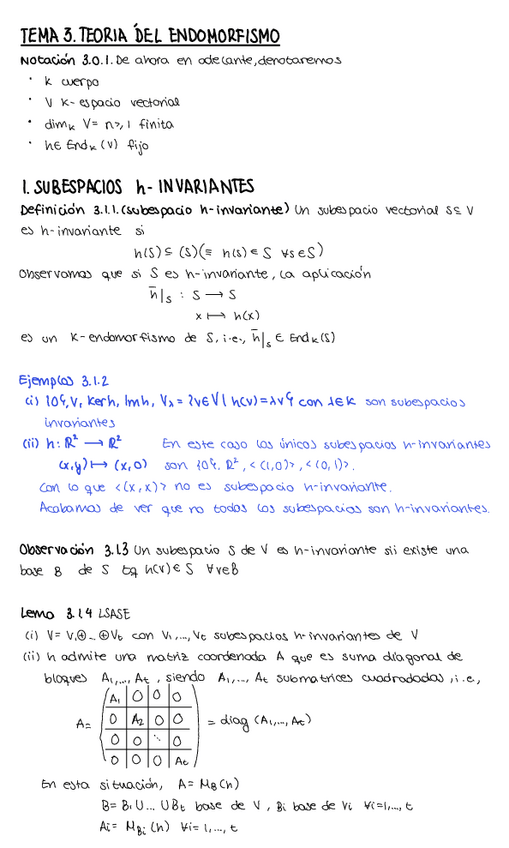 TEMA 3. TEORIA DEL ENDOMORFISMO
Notación 3.0.1. De ahora en adelante, denotaremos
· K cuerpo
· V K-espacio vectorial
· dimₖ V = n ≥ 1 finita
· h ∈ Endₖ(V) fijo
1. SUBESPACIOS h-INVARIANTES
Definición 3.1.1. (subespacio h-invariante) Un subespacio vectorial S ≤ V
es h-invariante si
h(S) ⊆ (S) (≡ h(s) ∈ S ∀s ∈ S)
Observamos que si S es h-invariante, la aplicación
h̄|ₛ : S ⟶ S
x ⟼ h(x)
es un K-endomorfismo de S, i.e., h̄|ₛ ∈ Endₖ(S)
Ejemplos 3.1.2
(i) {0}, V, Ker h, Im h, V_λ = {v ∈ V | h(v) = λv} con λ ∈ K son subespacios
invariantes
(ii) h: ℝ² ⟶ ℝ² En este caso los únicos subespacios h-invariantes
(x,y) ⟼ (x,0) son {0}, ℝ², <(1,0)>, <(0,1)>.
Con lo que <(x,x)> no es subespacio h-invariante.
Acabamos de ver que no todos los subespacios son h-invariantes.
Observación 3.1.3 Un subespacio S de V es h-invariante sii existe una
base B de S tq h(v) ∈ S ∀v∈B
Lema 3.1.4 LSASE
(i) V = V₁ ⊕ ... ⊕ Vt con V₁, ..., Vt subespacios h-invariantes de V
(ii) h admite una matriz coordenada A que es suma diagonal de
bloques A₁, ..., At, siendo A₁, ..., At submatrices cuadradadas, i.e.,
A₁ 0 0 0
A = 0 A₂ 0 0 = diag (A₁, ..., At)
0 0 ⋱ 0
0 0 0 At
En esta situación, A = M_B(h)
B = B₁ ∪ ... ∪ Bt base de V, Bi base de Vi ∀i=1,..., t
Ai = M_Bi(h) ∀i = 1, ..., t